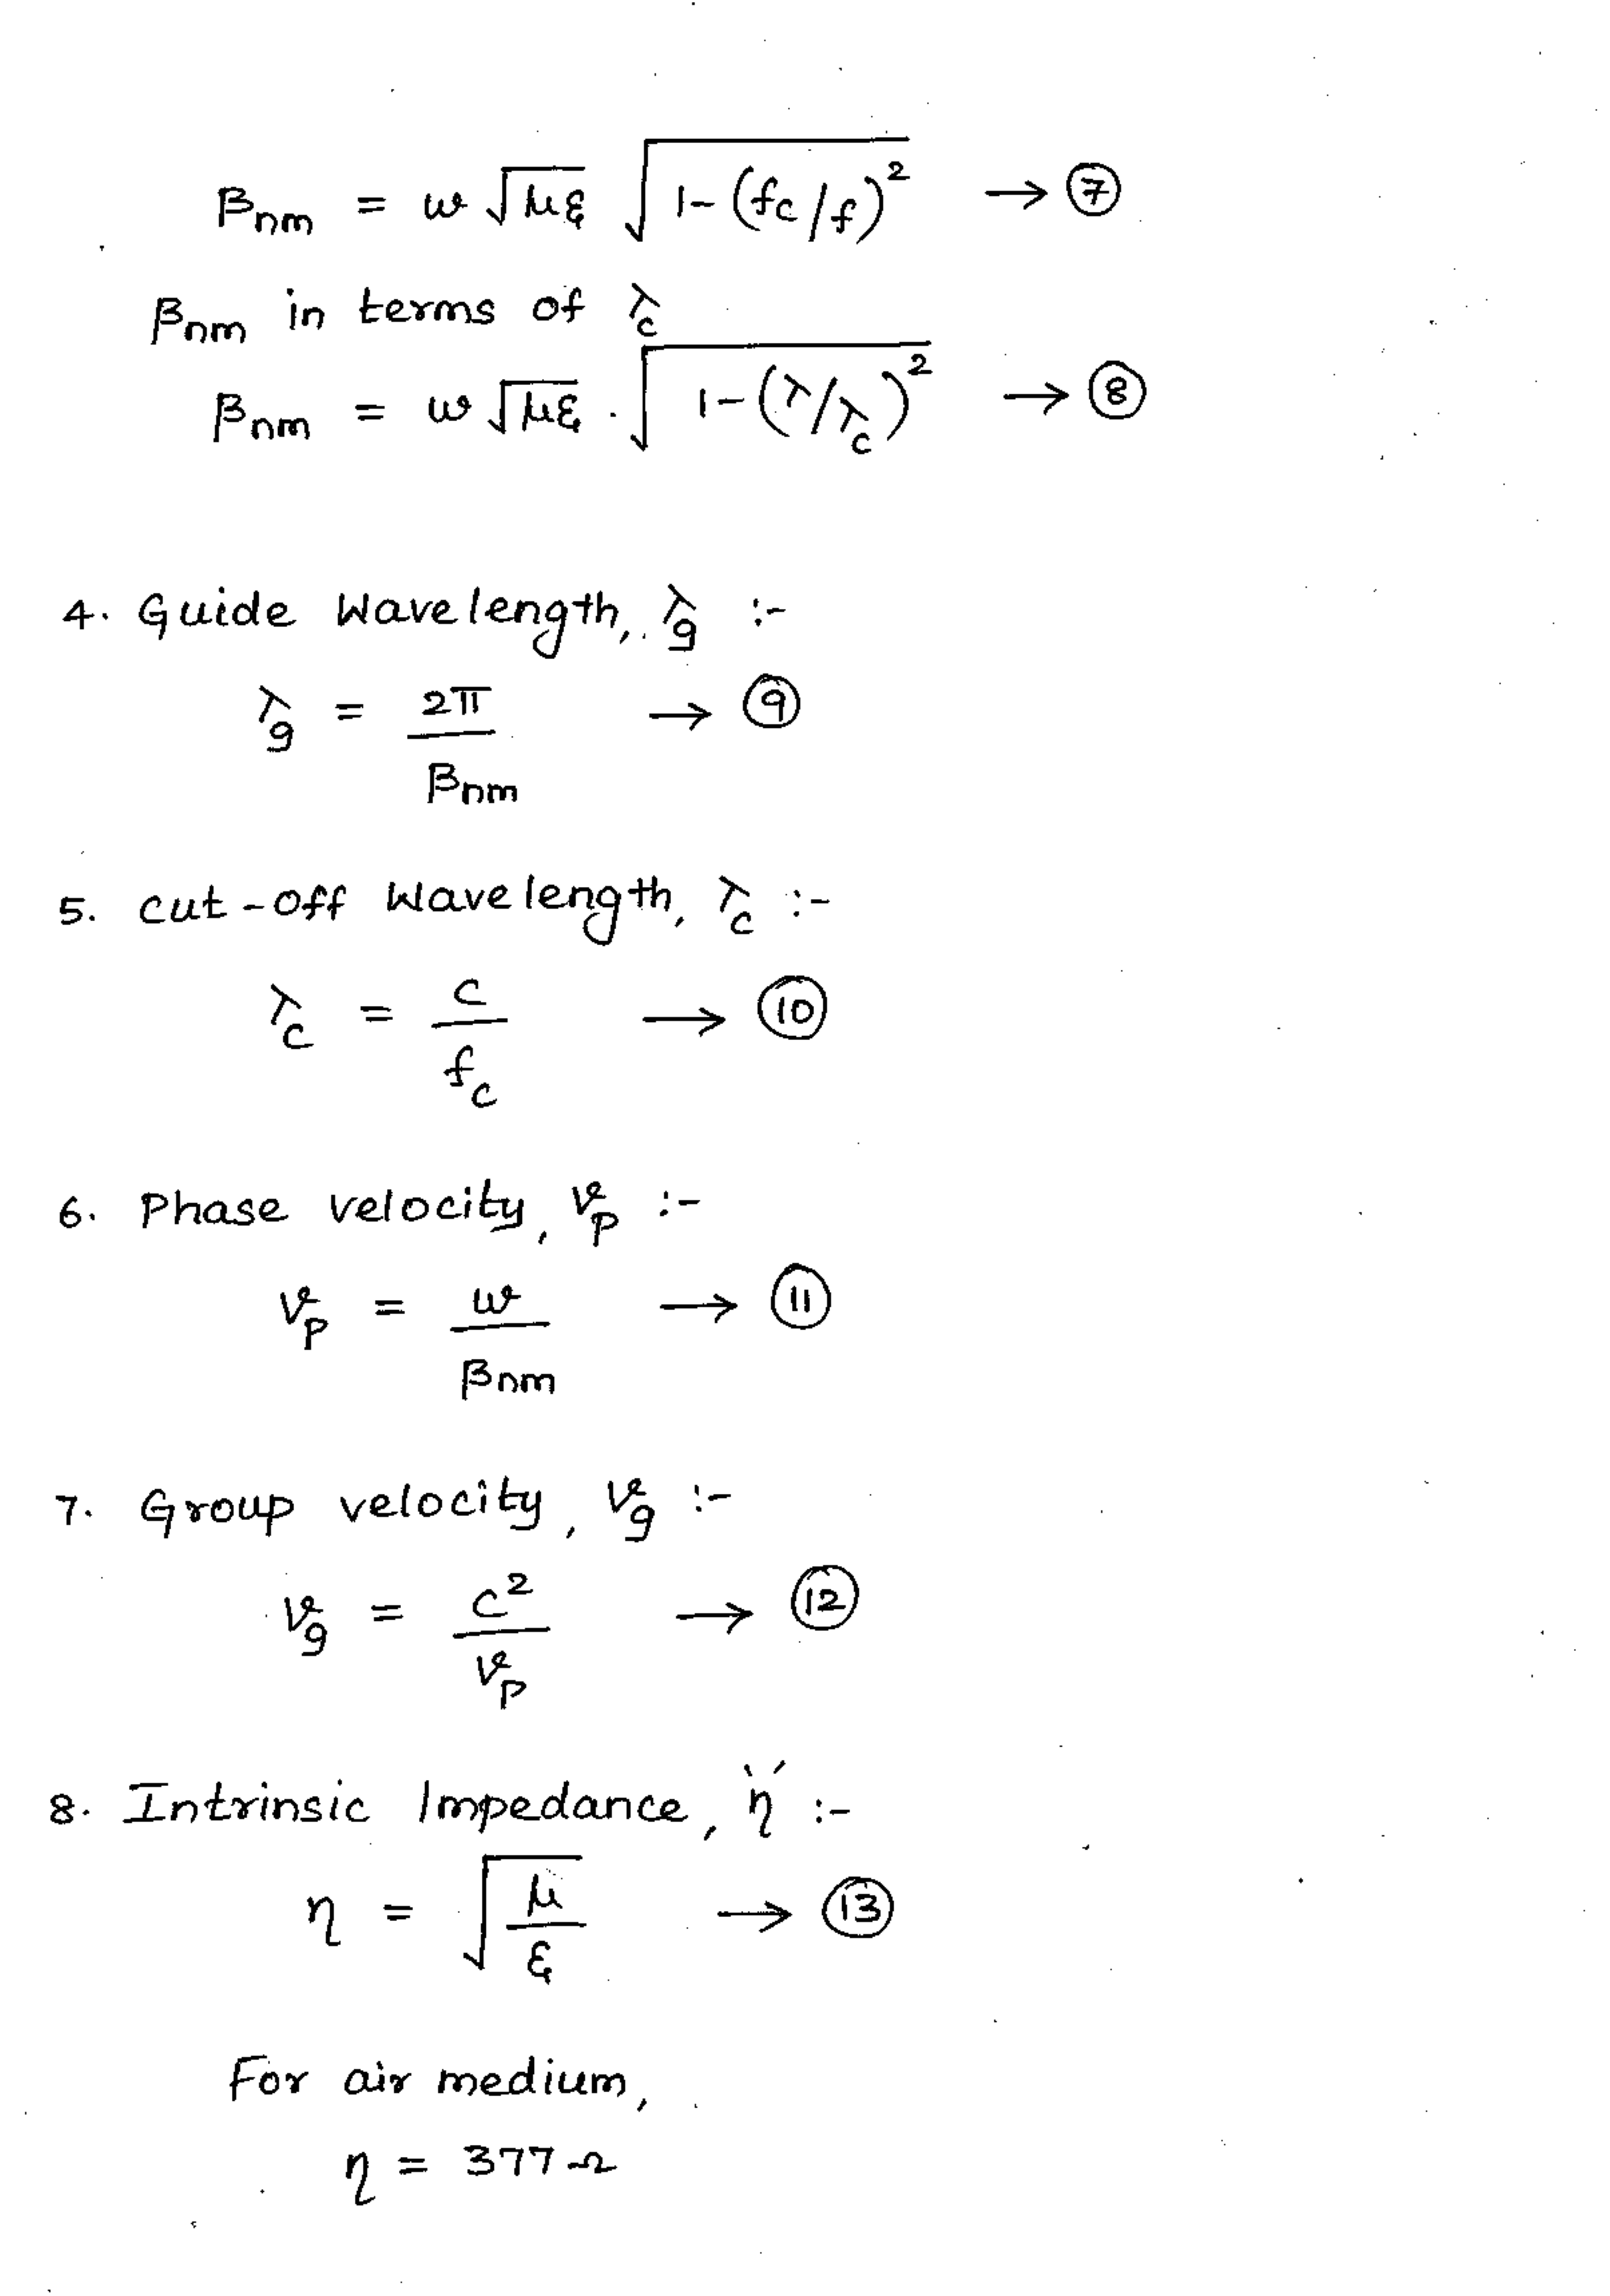 βnm = ω √με √1-(fc/f)² → ⑦
βnm in terms of λc
βnm = ω √με . √1-(λ/λc)² → ⑧
4. Guide Wavelength, λg :-
λg = 2π/βnm → ⑨
5. cut-off Wavelength, λc :-
λc = c/fc → ⑩
6. Phase velocity, vp :-
vp = ω/βnm → ⑪
7. Group velocity, vg :-
vg = c²/vp → ⑫
8. Intrinsic Impedance, 'η' :-
η = √μ/ε → ⑬
For air medium,
η = 377 Ω